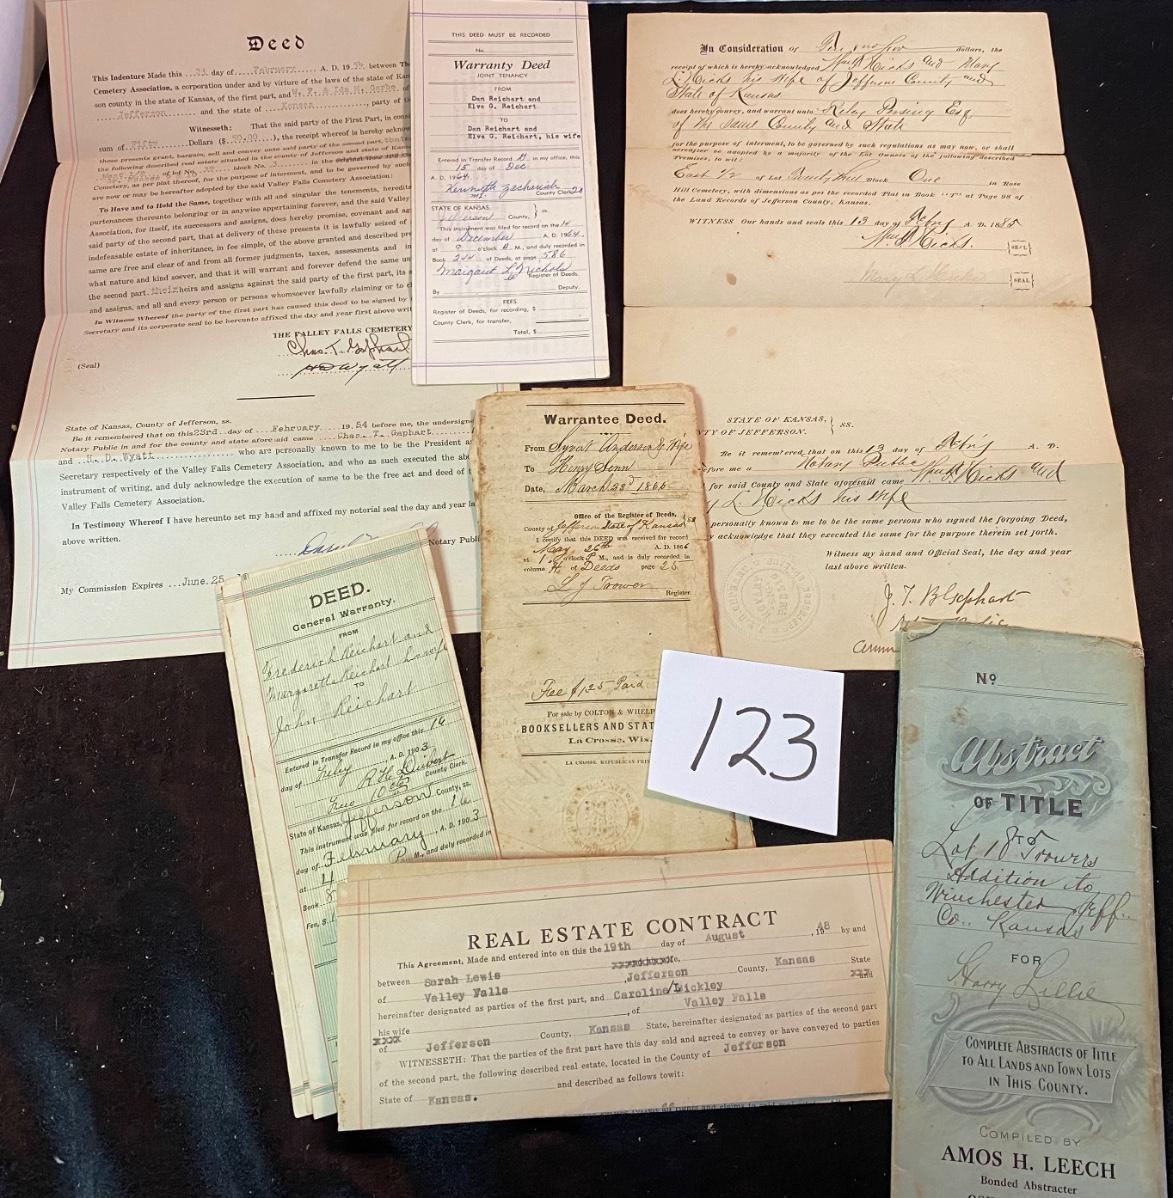 Deed
This Indenture Made this day of February A. D. 19 between
Cemetery Association, a corporation under and by virtue of the laws of the state of
son county in the state of Kansas, of the first part, and
Jefferson and the state of Kansas, party of
Witnesseth: That the said party of the First part, in
sum of Fifty Dollars ($50.00), the receipt whereof is hereby
these presents grant, bargain, sell and convey unto said party of the second part,
the following described real estate situated in the county of Jefferson and state of
of lot No. block No.
Cemetery, as per plat thereof, for the purpose of interment, and to be governed by such
are now or may hereafter be adopted by the said Valley Falls Cemetery Association:
To Have and to Hold the Same, together with all and singular the tenements,
purtenances thereunto belonging or in anywise appertaining forever, and the said Valley
Association, for itself, its successors and assigns, does hereby promise, covenant and
said party of the second part, that at delivery of these presents it is lawfully seized of
indefeasable estate of inheritance, in fee simple, of the above granted and described
same are free and clear of and from all former judgments, taxes, assessments and
what nature and kind soever, and that it will warrant and forever defend the same
the second part, their heirs and assigns against the said party of the first part, its
and assigns, and all and every person or persons whomsoever lawfully claiming or to
In Witness Whereof the party of the first part has caused this deed to be signed by
Secretary and its corporate seal to be hereunto affixed the day and year first above
THE VALLEY FALLS CEMETERY
(Seal)
Chas. T. Gephart
H D Wyatt
State of Kansas, County of Jefferson, ss.
Be it remembered that on this 23rd day of February 1954 before me, the undersigned
Notary Public in and for the county and state aforesaid came Chas. T. Gephart
and H. D. Wyatt who are personally known to me to be the President
Secretary respectively of the Valley Falls Cemetery Association, and who as such executed the
instrument of writing, and duly acknowledge the execution of same to be the free act and deed of
Valley Falls Cemetery Association.
In Testimony Whereof I have hereunto set my hand and affixed my notorial seal the day and year
above written.
Notary
My Commission Expires June. 25
THIS DEED MUST BE RECORDED
No.
Warranty Deed
JOINT TENANCY
FROM
Dan Reichart and
Elva G. Reichart
TO
Dan Reichart and
Elva G. Reichart, his wife
Entered in Transfer Record in my office, this
15 day of Dec
A. D. 1964
Kennyth Zachariah
County Clerk
STATE OF KANSAS,
Jefferson County, ss.
This instrument was filed for record on the 14
day of December A. D. 1964
at o'clock M., and duly recorded in
Book 244 of Deeds, at page 586
Margaret L. Nichols
Register of Deeds.
By Deputy.
FEES
Register of Deeds, for recording, $
County Clerk, for transfer,
Total, $
In Consideration of dollars, the
receipt of which is hereby acknowledged and Mary
L. Hicks his wife of Jefferson County and
State of Kansas
does hereby convey, and warrant unto Esq.
of the same County and State
for the purpose of interment, to be governed by such regulations as may now, or shall
hereafter be adopted by a majority of the Lot Owners of the following described
Premises, to wit:
East 1/2 of Block One in Rose
Hill Cemetery, with dimensions as per the recorded Plat in Book "T" at Page 98 of
the Land Records of Jefferson County, Kansas.
WITNESS Our hands and seals this 13 day of A. D. 1885
Hicks. SEAL
Mary L. SEAL
STATE OF KANSAS,
COUNTY OF JEFFERSON. SS.
Be it remembered that on this 13 day of A. D.
before me a Notary Public
for said County and State aforesaid came Hicks and
L. Hicks his Wife
personally known to me to be the same persons who signed the forgoing Deed,
acknowledge that they executed the same for the purpose therein set forth.
Witness my hand and Official Seal, the day and year
last above written.
Gephart
Warrantee Deed.
From Anderson & Wife
To Henry Senn
Date, March 23d 1866
Office of the Register of Deeds,
County of Jefferson State of Kansas ss
I certify that this DEED was received for record
May 26th A. D. 1866
at 1 o'clock P. M., and is duly recorded in
volume H of Deeds page 25
L J Trower
Register
Fee $1.25 Paid
For sale by COLTON &
BOOKSELLERS AND
La Crosse, Wis.
LA CROSSE REPUBLICAN
123
DEED.
General Warranty.
FROM
Frederich Reichart and
Margaretha Reichart
TO
John Reichart
Entered in Transfer Record in my office this 16
day of A. D. 1903
County Clerk.
State of Kansas, Jefferson County, ss.
This instrument was filed for record on the 16
day of February A. D. 1903
at 4 P M., and duly recorded in
Book
Fee, $
REAL ESTATE CONTRACT
This Agreement, Made and entered into on this the 19th day of August, 1948 by and
between Sarah Lewis
of Valley Falls, Jefferson County, Kansas State
hereinafter designated as parties of the first part, and Caroline/Lickley
his wife, of Valley Falls
of Jefferson County, Kansas State, hereinafter designated as parties of the second part
WITNESSETH: That the parties of the first part have this day sold and agreed to convey or have conveyed to parties
of the second part, the following described real estate, located in the County of Jefferson
State of Kansas. and described as follows towit:
No
Abstract
OF TITLE
TO
Lot 1 Trowers
Addition to
Winchester Jeff.
Co., Kansas
FOR
Harry Lillie
COMPLETE ABSTRACTS OF TITLE
TO ALL LANDS AND TOWN LOTS
IN THIS COUNTY.
COMPILED BY
AMOS H. LEECH
Bonded Abstracter